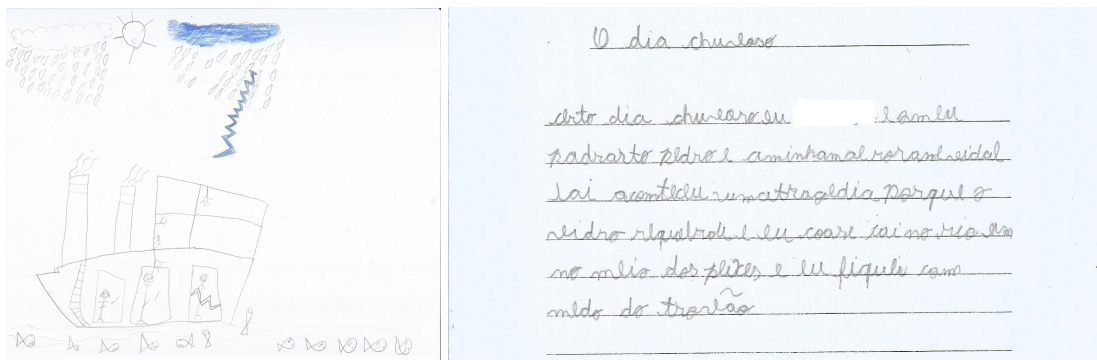 O dia chuvoso
certo dia chuvoso eu e o meu
padrarto pedro e a minha mae
aconteceu uma tragedia porque o
vidro se quebrou e eu coase cai no rio em
no meio dos peixes e eu fiquei com
medo do trovão